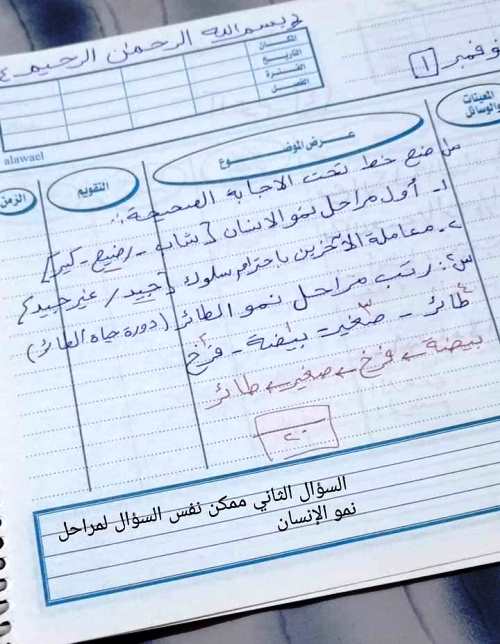 بسم الله الرحمن الرحيم
المكان
التاريخ
الفترة
الفصل
نوفمبر ١
alawael
المعينات والوسائل
عرض الموضوع
التقويم
الزمن
س١ ضع خط تحت الاجابة الصحيحة:
١- أول مراحل نمو الانسان [شاب - رضيع - كبير]
٢- معاملة الآخرين باحترام سلوك [جيد / غير جيد]
س٢: رتب مراحل نمو الطائر (دورة حياة الطائر)
طائر - صغير - بيضة - فرخ
٤ ٣ ١ ٢
بيضة ← فرخ ← صغير ← طائر
٢٠
السؤال الثاني ممكن نفس السؤال لمراحل
نمو الإنسان